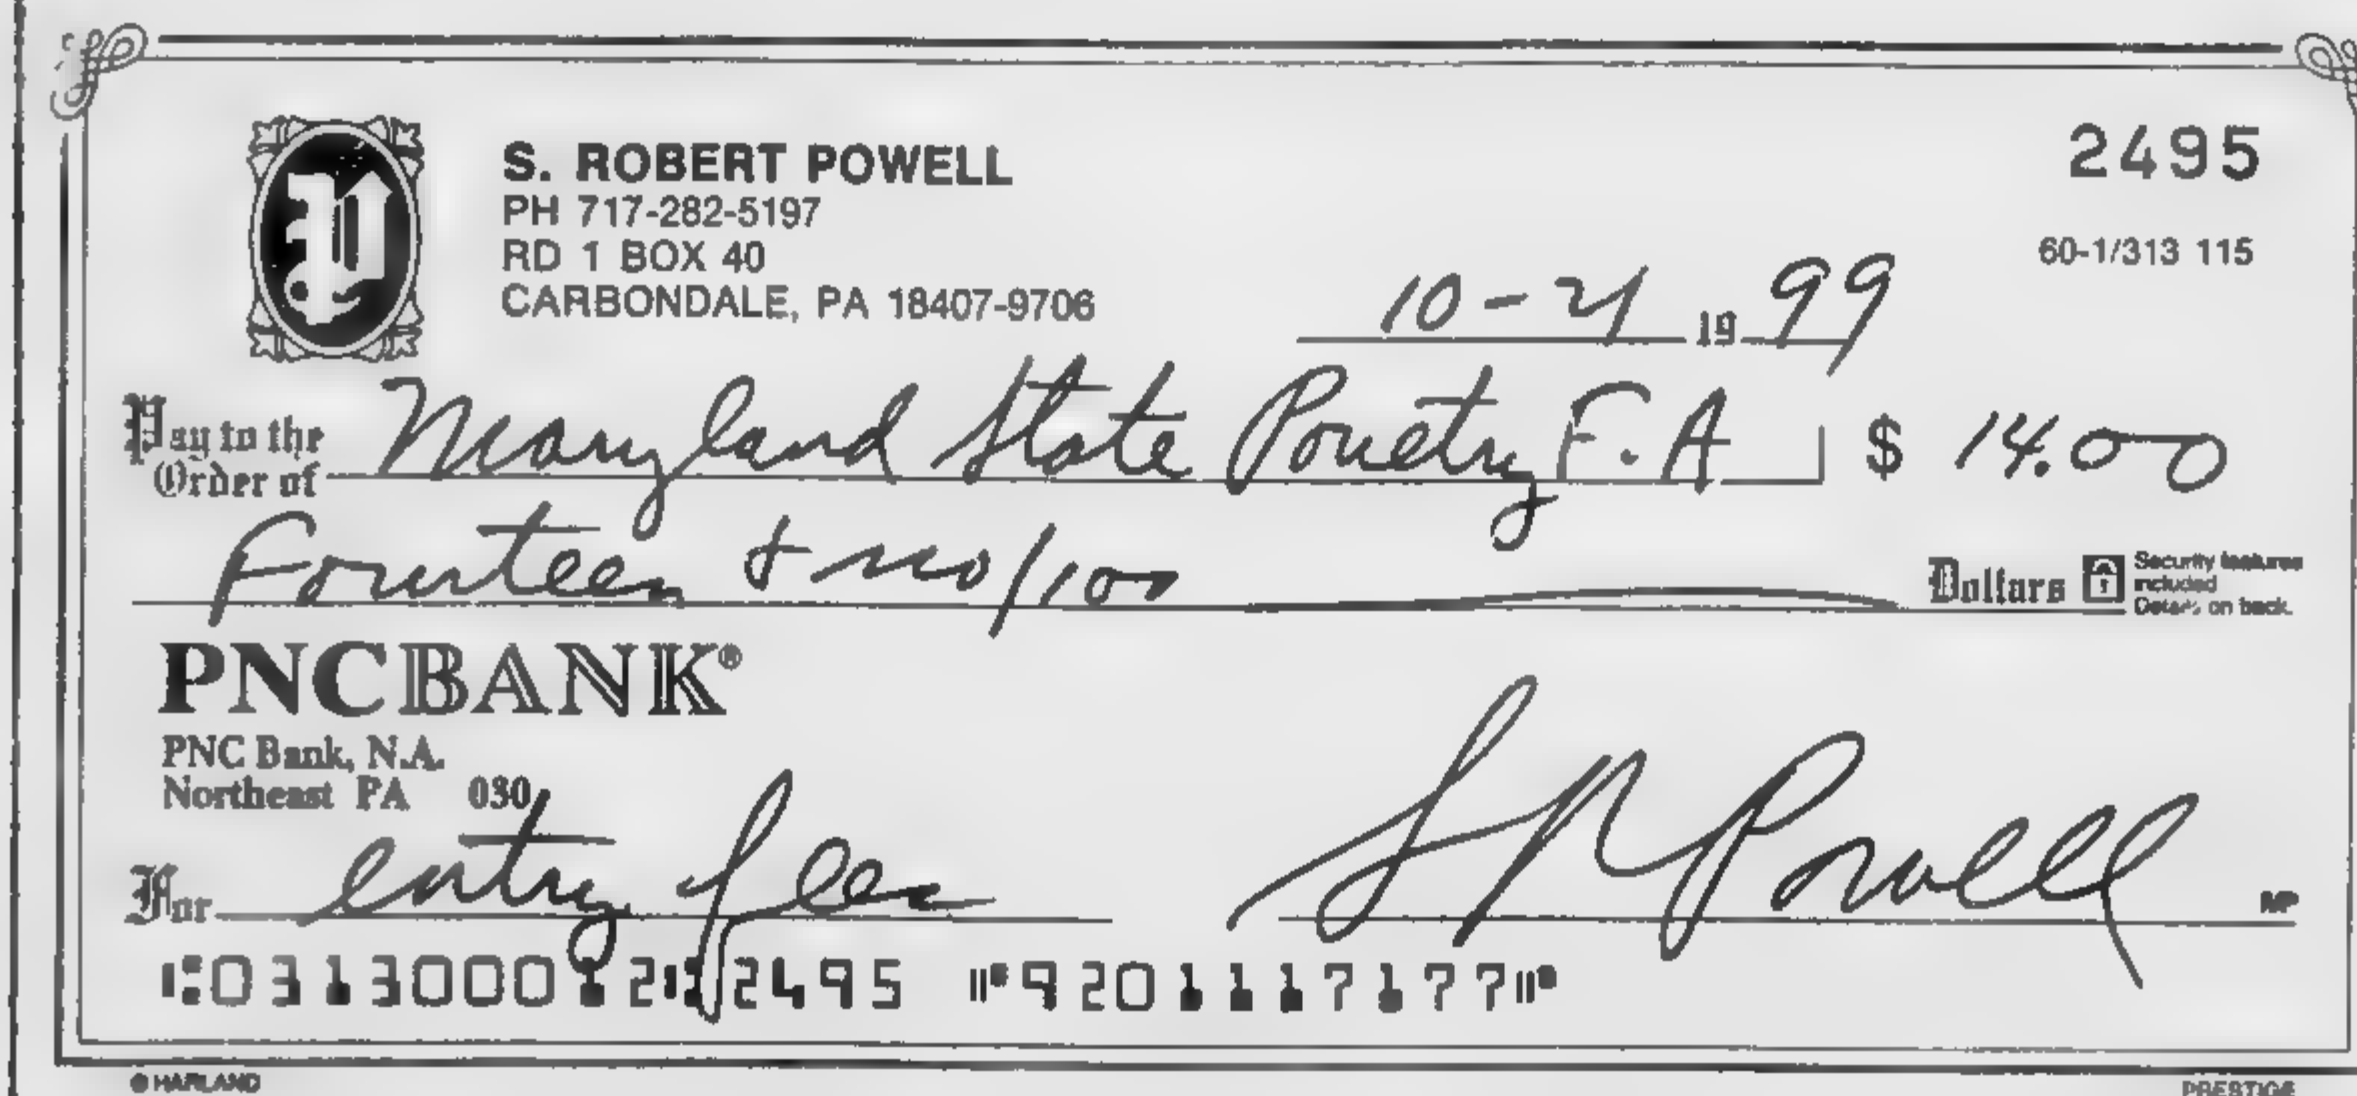 S. ROBERT POWELL
PH 717-282-5197
RD 1 BOX 40
CARBONDALE, PA 18407-9706
2495
60-1/313 115
10-21 19 99
Pay to the Order of Maryland State Pouetry F.A $ 14.00
Fourteen & no/100 Dollars
Security features
included
Details on back.
PNCBANK®
PNC Bank, N.A.
Northeast PA 030
For entry fee S R Powell MP
⑆031300012⑆2495 ⑈9201117177⑈
© HARLAND
PRESTIGE